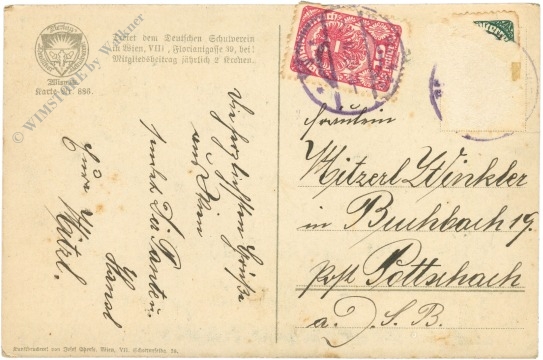 Tretet dem Deutschen Schulverein
in Wien, VIII, Florianigasse 39, bei!
Mitgliedsbeitrag jährlich 2 Kronen.
Karte Nr. 885.
© WIMSTORE by Winkler
Die herzlichsten Grüße
aus Wien
sendet Dir Tante u.
Hansl
Fräulein
Mitzerl Winkler
in Buchbach 19.
Post Pottschach
a. d. S. B.
Kunstdruckerei von Josef Eberle, Wien, VII. Schottenfeldg. 38.